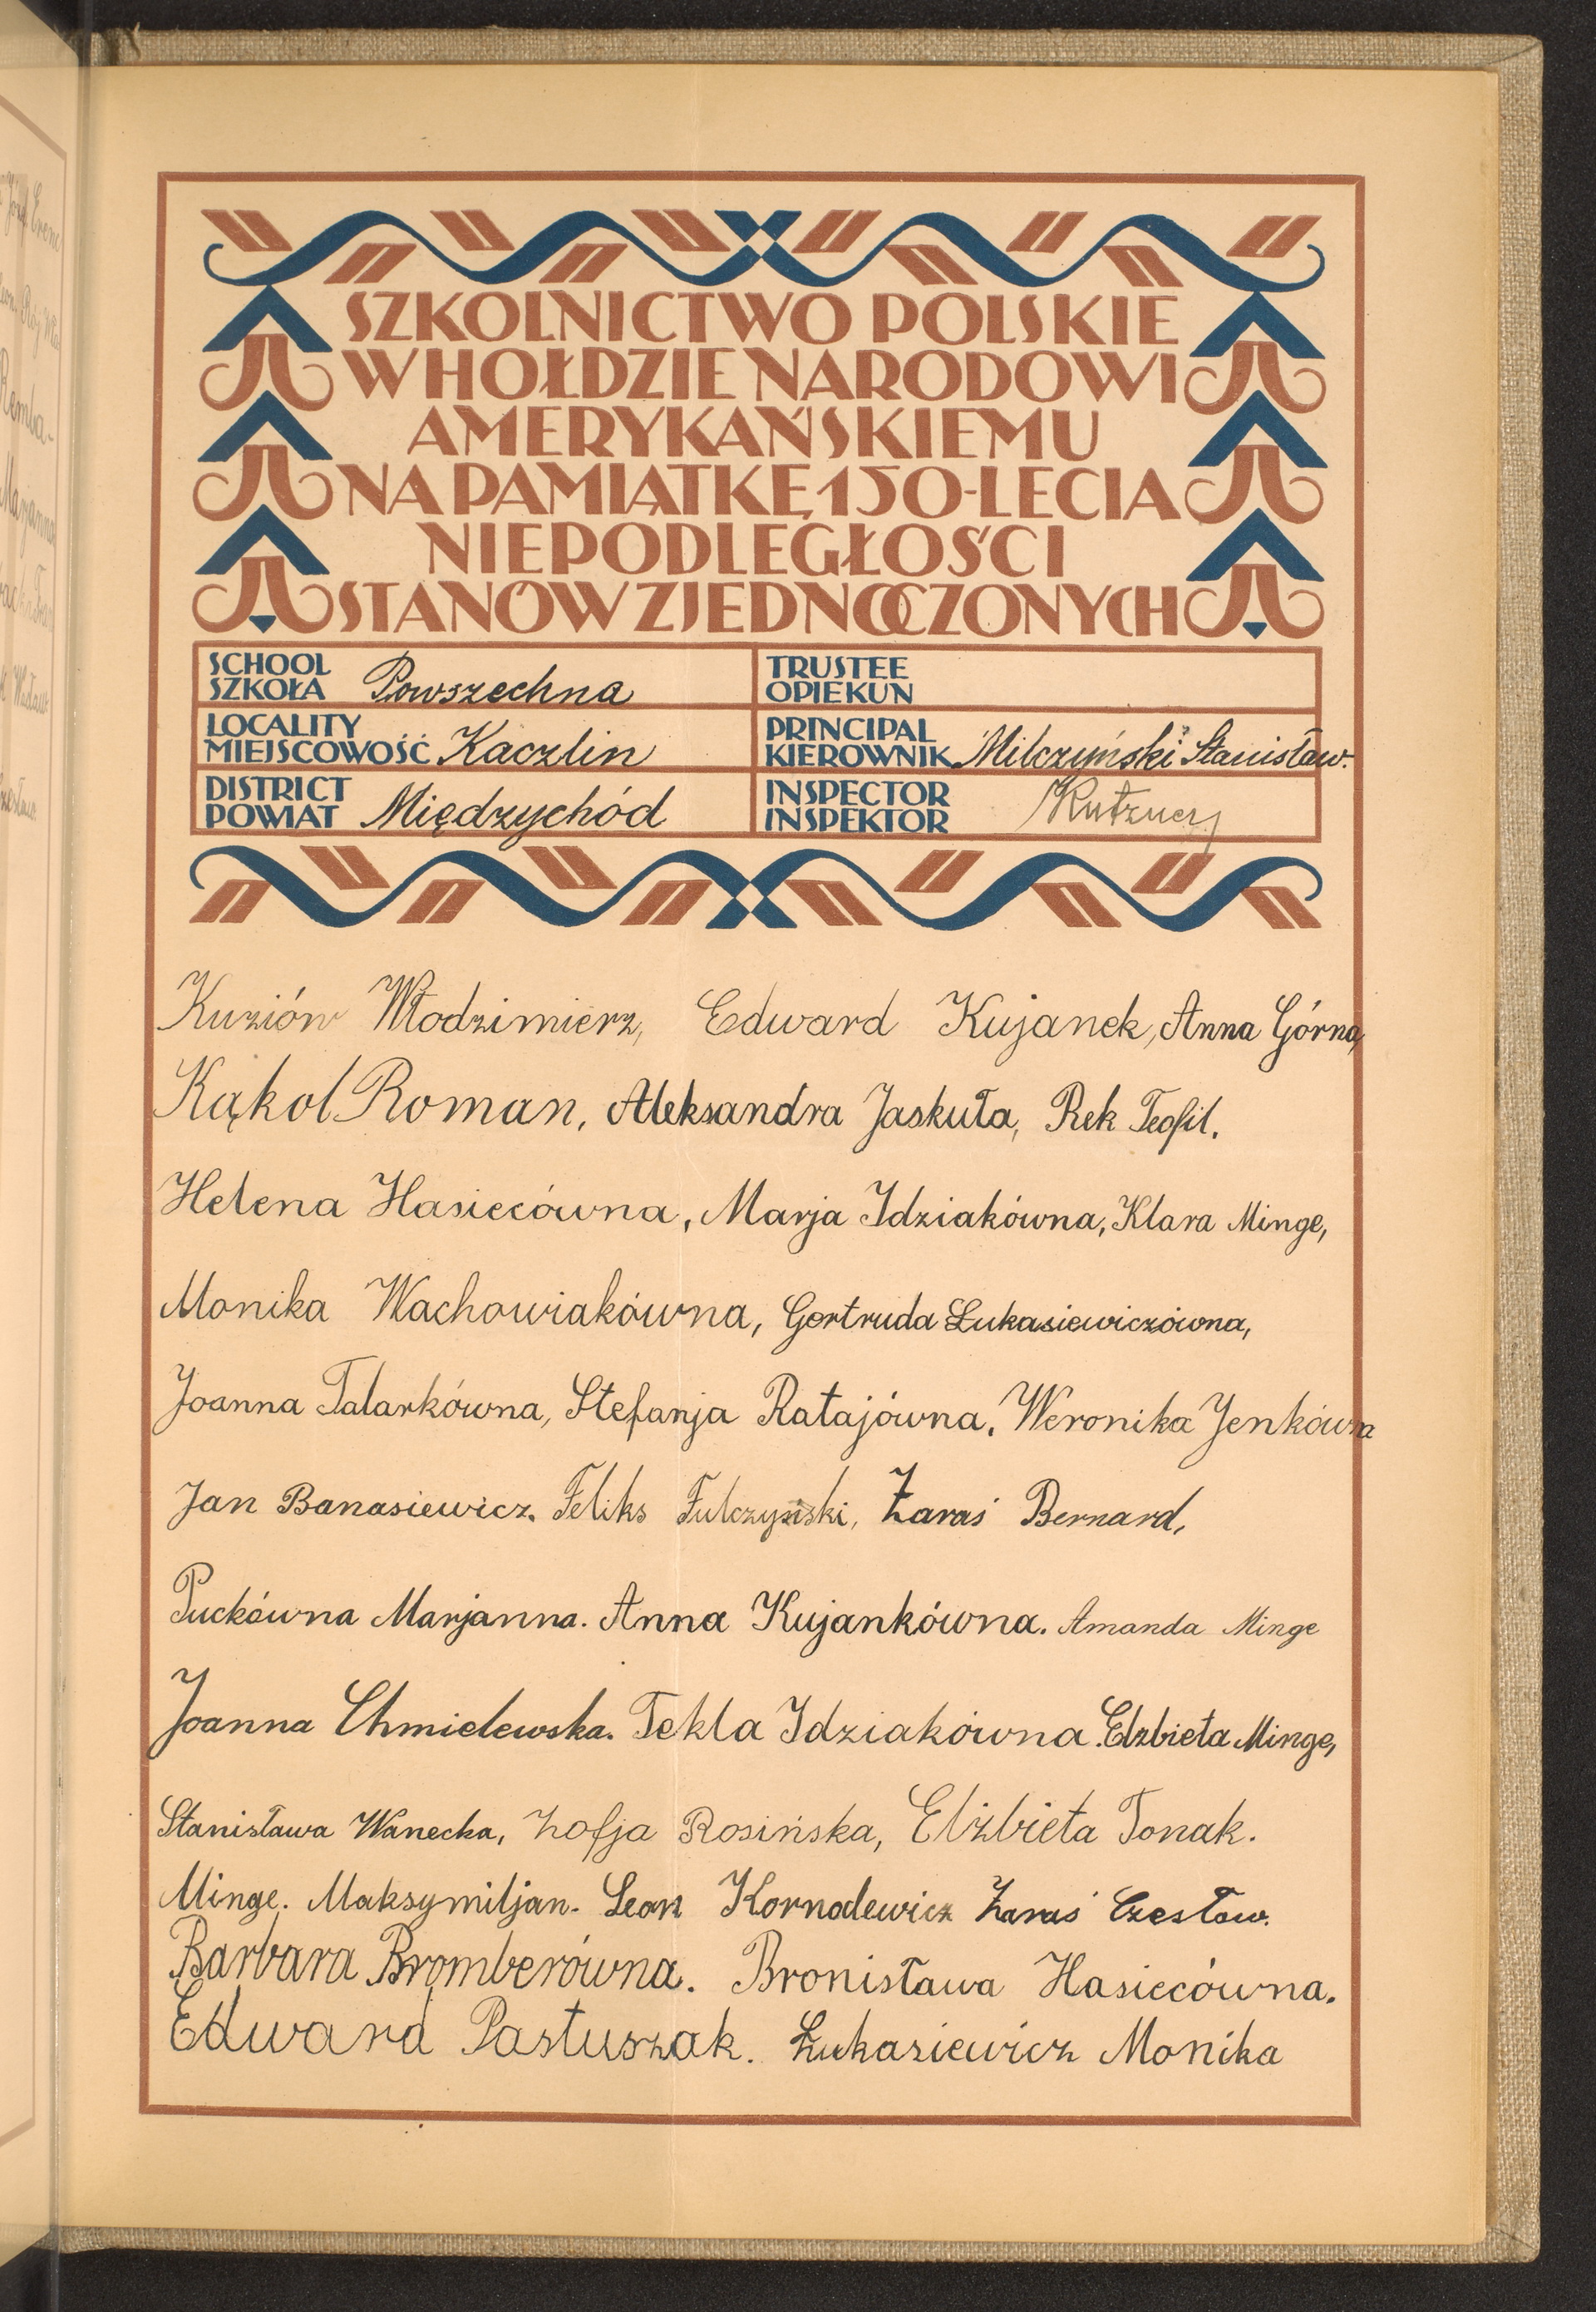 SZKOLNICTWO POLSKIE
W HOŁDZIE NARODOWI
AMERYKAŃSKIEMU
NA PAMIĄTKĘ 150-LECIA
NIEPODLEGŁOŚCI
STANÓW ZJEDNOCZONYCH
SCHOOL
SZKOŁA Powszechna
TRUSTEE
OPIEKUN
LOCALITY
MIEJSCOWOŚĆ Kaczlin
PRINCIPAL
KIEROWNIK Milczyński Stanisław.
DISTRICT
POWIAT Międzychód
INSPECTOR
INSPEKTOR
Kuziów Włodzimierz, Edward Kujanek, Anna Górna,
Kąkol Roman, Aleksandra Jaskuła, Rek Teofil.
Helena Hasiecówna, Marja Idziakówna, Klara Minge,
Monika Wachowiakówna, Gertruda Łukasiewiczówna,
Joanna Talarkówna, Stefanja Ratajówna, Weronika Jenkówna
Jan Banasiewicz. Feliks Fulczyński, Żaraś Bernard,
Puckówna Marjanna. Anna Kujankówna. Amanda Minge
Joanna Chmielewska. Tekla Idziakówna. Elzbieta Minge,
Stanisława Wanecka, Zofja Rosińska, Elżbieta Tonak.
Minge. Maksymiljan. Leon Kornodewicz Żaraś Czesław.
Barbara Bromberówna. Bronisława Hasiecówna.
Edward Pastuszak. Łukasiewicz Monika